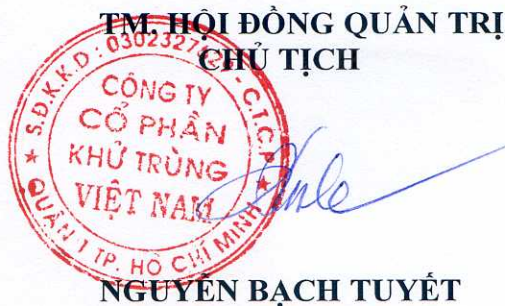 TM. HỘI ĐỒNG QUẢN TRỊ
CHỦ TỊCH
CÔNG TY
CỔ PHẦN
KHỬ TRÙNG
VIỆT NAM
★ QUẬN 1 TP. HỒ CHÍ MINH ★
NGUYỄN BẠCH TUYẾT